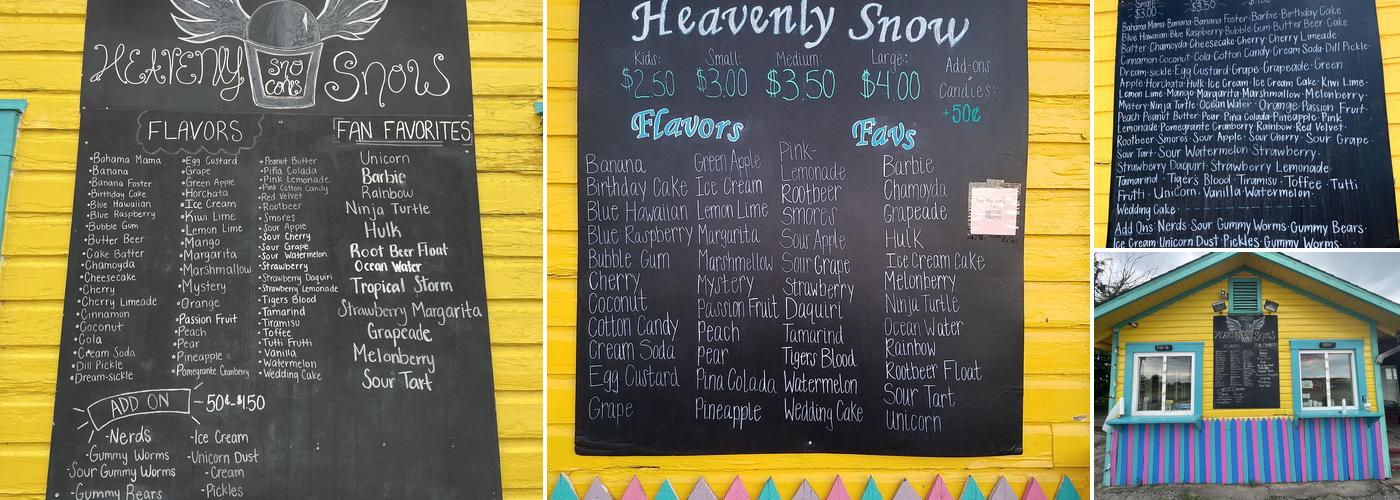 HEAVENLY SNOW
sno
cones
FLAVORS
•Bahama Mama
•Banana
•Banana Foster
•Birthday Cake
•Blue Hawaiian
•Blue Raspberry
•Bubble Gum
•Butter Beer
•Cake Batter
•Chamoyda
•Cheesecake
•Cherry
•Cherry Limeade
•Cinnamon
•Coconut
•Cola
•Cream Soda
•Dill Pickle
•Dream-sickle
•Egg Custard
•Grape
•Green Apple
•Horchata
•Ice Cream
•Kiwi Lime
•Lemon Lime
•Mango
•Margarita
•Marshmallow
•Mystery
•Orange
•Passion Fruit
•Peach
•Pear
•Pineapple
•Pomegranate Cranberry
•Peanut Butter
•Piña Colada
•Pink Lemonade
•Pink Cotton Candy
•Red Velvet
•Rootbeer
•Smores
•Sour Apple
•Sour Cherry
•Sour Grape
•Sour Watermelon
•Strawberry
•Strawberry Daquiri
•Strawberry Lemonade
•Tigers Blood
•Tamarind
•Tiramisu
•Toffee
•Tutti Frutti
•Vanilla
•Watermelon
•Wedding Cake
FAN FAVORITES
Unicorn
Barbie
Rainbow
Ninja Turtle
Hulk
Root Beer Float
Ocean Water
Tropical Storm
Strawberry Margarita
Grapeade
Melonberry
Sour Tart
ADD ON
50¢-$1.50
-Nerds
-Gummy Worms
-Sour Gummy Worms
-Gummy Bears
-Ice Cream
-Unicorn Dust
-Cream
-Pickles
Heavenly Snow
Kids: Small: Medium: Large:
$2.50 $3.00 $3.50 $4.00
Add-ons
Candies:
+50¢
Flavors
Banana
Birthday Cake
Blue Hawaiian
Blue Raspberry
Bubble Gum
Cherry
Coconut
Cotton Candy
Cream Soda
Egg Custard
Grape
Green Apple
Ice Cream
Lemon Lime
Margarita
Marshmellow
Mystery
Passion Fruit
Peach
Pear
Pina Colada
Pineapple
Pink-
Lemonade
Rootbeer
Smores
Sour Apple
Sour Grape
Strawberry
Daquiri
Tamarind
Tigers Blood
Watermelon
Wedding Cake
Favs
Barbie
Chamoyda
Grapeade
Hulk
Ice Cream Cake
Melonberry
Ninja Turtle
Ocean Water
Rainbow
Rootbeer Float
Sour Tart
Unicorn
$3.00 $3.50
Bahama Mama·Banana·Banana Foster·Barbie·Birthday Cake·
Blue Hawaiian·Blue Raspberry·Bubble Gum·Butter Beer·Cake
Batter·Chamoyda·Cheesecake·Cherry·Cherry Limeade·
Cinnamon·Coconut·Cola·Cotton Candy·Cream Soda·Dill Pickle·
Dream-sickle·Egg Custard·Grape·Grapeade·Green
Apple·Horchata·Hulk·Ice Cream·Ice Cream Cake·Kiwi Lime·
Lemon Lime·Mango·Margarita·Marshmallow·Melonberry·
Mystery·Ninja Turtle·Ocean Water·Orange·Passion Fruit·
Peach·Peanut Butter·Pear·Pina Colada·Pineapple·Pink
Lemonade·Pomegranate Cranberry·Rainbow·Red Velvet·
Rootbeer·Smores·Sour Apple·Sour Cherry·Sour Grape·
Sour Tart·Sour Watermelon·Strawberry·
Strawberry Daquiri·Strawberry Lemonade·
Tamarind·Tigers Blood·Tiramisu·Toffee·Tutti
Frutti·Unicorn·Vanilla·Watermelon·
Wedding Cake
Add Ons: Nerds·Sour Gummy Worms·Gummy Bears·
Ice Cream·Unicorn Dust·Pickles·Gummy Worms·
HEAVENLY SNOW